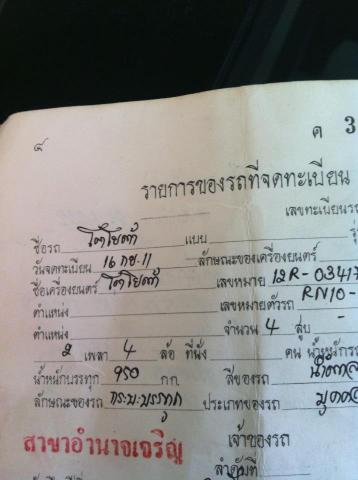 ๔ ค 3
รายการของรถที่จดทะเบียน
เลขทะเบียนรถ
ชื่อรถ โตโยต้า แบบ
วันจดทะเบียน 16 กย. 11 ลักษณะของเครื่องยนตร์
ชื่อเครื่องยนตร์ โตโยต้า เลขหมาย 12R-03417
ตำแหน่ง เลขหมายตัวรถ RN10-
ตำแหน่ง จำนวน 4 สูบ -
2 เพลา 4 ล้อ ที่นั่ง คน น้ำหนักรถ
น้ำหนักบรรทุก 950 กก. สีของรถ
ลักษณะของรถ กระบะบรรทุก ประเภทของรถ
สาขาอำนาจเจริญ เจ้าของรถ
ลำดับที่